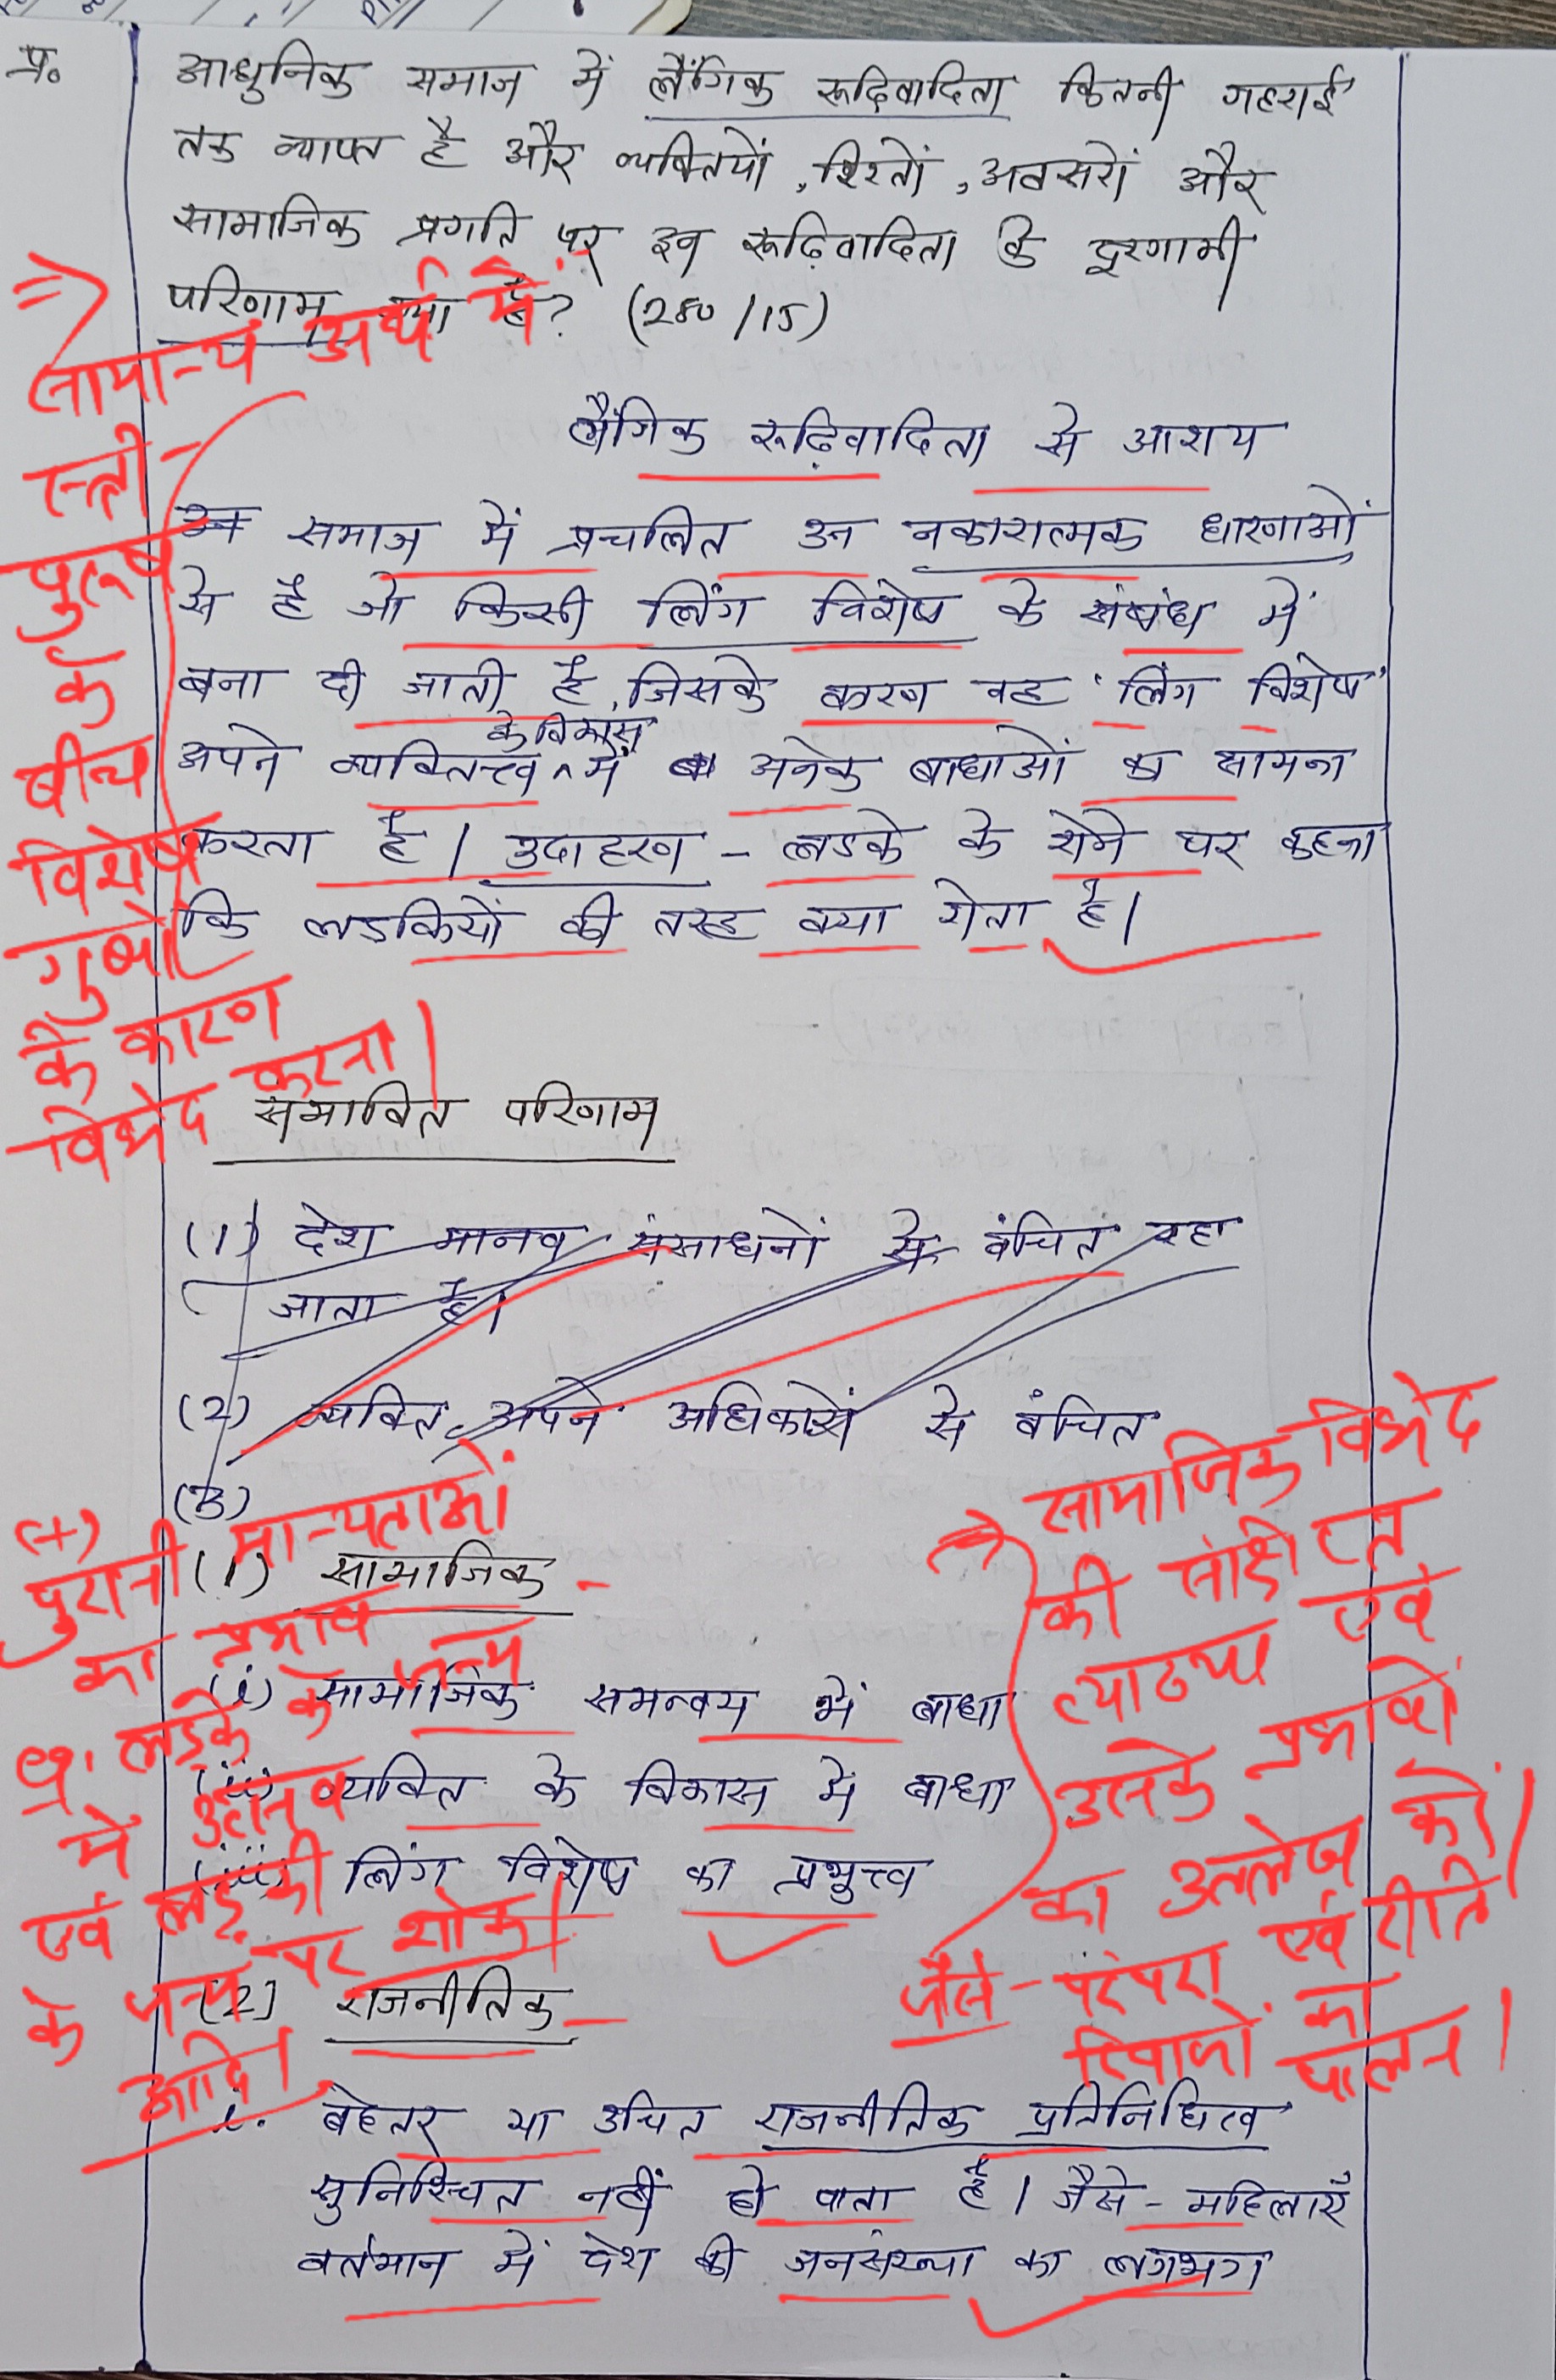 प्र.
आधुनिक समाज में लैंगिक रूढ़िवादिता कितनी गहराई
तक व्याप्त है और व्यक्तियों, रिश्तों, अवसरों और
सामाजिक प्रगति पर इन रूढ़िवादिता के दूरगामी
परिणाम क्या है? (250/15)
लैंगिक रूढ़िवादिता से आशय
समाज में प्रचलित उन नकारात्मक धारणाओं
से है जो किसी लिंग विशेष के संबंध में
बना दी जाती है, जिसके कारण वह 'लिंग विशेष'
अपने व्यक्तित्त्व के विकास में अनेक बाधाओं का सामना
करता है। उदाहरण - लडके के रोने पर कहना
कि लडकियों की तरह क्या रोता है।
⇒ सामान्य अर्थ में
स्त्री-
पुरुष
के
बीच
विशेष
गुणों
के कारण
विभेद करना।
सभावित परिणाम
(1) देश मानव संसाधनों से वंचित रहा
जाता है।
(2) व्यक्ति अपने अधिकारों से वंचित
(3)
(1) सामाजिक -
(i) सामाजिक समन्वय में बाधा
(ii) व्यक्ति के विकास में बाधा
(iii) लिंग विशेष का प्रभुत्त्व
(+)
पुरानी मान्यताओं
का प्रभाव
लड़के के जन्म
में उत्सव
एवं लड़की
के जन्म पर शोक।
आदि।
⇒ सामाजिक विभेद
की संक्षिप्त
व्याख्या एवं
उसके प्रभावों
का उल्लेख करें।
जैसे - परंपरा एवं रीति
रिवाजों का
पालन।
(2) राजनीतिक -
i. बेहतर या उचित राजनीतिक प्रतिनिधित्व
सुनिश्चित नहीं हो पाता है। जैसे - महिलाएँ
वर्तमान में देश की जनसंख्या का लगभग